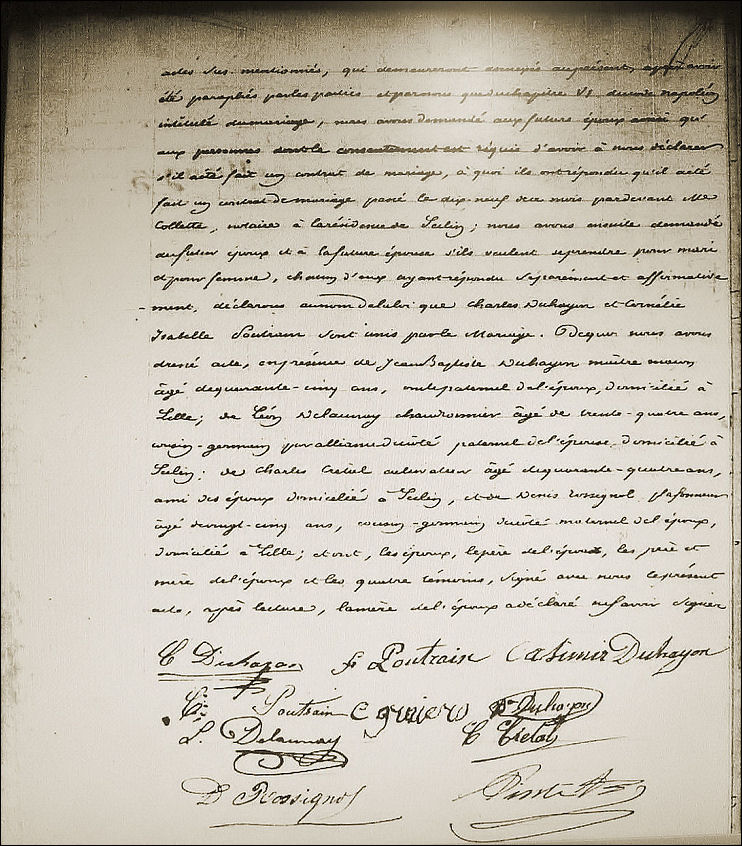 actes sus-mentionnés, qui demeureront annexés au présent, après avoir
été paraphés par les parties et par nous que du chapitre VI du code Napoléon
intitulé du mariage, nous avons demandé aux futurs époux ainsi qu'
aux personnes dont le consentement est requis d'avoir à nous déclarer
s'il a été fait un contrat de mariage, à quoi ils ont répondu qu'il a été
fait un contrat de mariage passé le dix-neuf de ce mois pardevant Me
Collette, notaire à la résidence de Seclin; nous avons ensuite demandé
au futur époux et à la future épouse s'ils veulent se prendre pour mari
et pour femme, chacun d'eux ayant répondu séparément et affirmative
ment, déclarons au nom de la loi que Charles Duhayon et Cornélie
Isabelle Poutrain sont unis par le Mariage. De quoi nous avons
dressé acte, en présence de Jean Baptiste Duhayon maître maçon
âgé de quarante-cinq ans, oncle paternel de l'époux, domicilié à
Lille; de Léon Delaunay chaudronnier âgé de trente-quatre ans,
cousin-germain par alliance du côté paternel de l'épouse domicilié à
Seclin; de Charles Cretal cultivateur âgé de quarante-quatre ans,
ami des époux domicilié à Seclin, et de Denis Rossignol plafonneur
âgé de vingt-cinq ans, cousin-germain du côté maternel de l'époux,
domicilié à Lille; et ont, les époux, le père de l'époux, les père et
mère de l'époux et les quatre témoins, signé avec nous le présent
acte, après lecture, la mère de l'époux a déclaré ne savoir signer
C Duhayon fs Poutrain Casimir Duhayon
Poutrain Duhayon
L. Delaunay C Cretal
D Rossignol